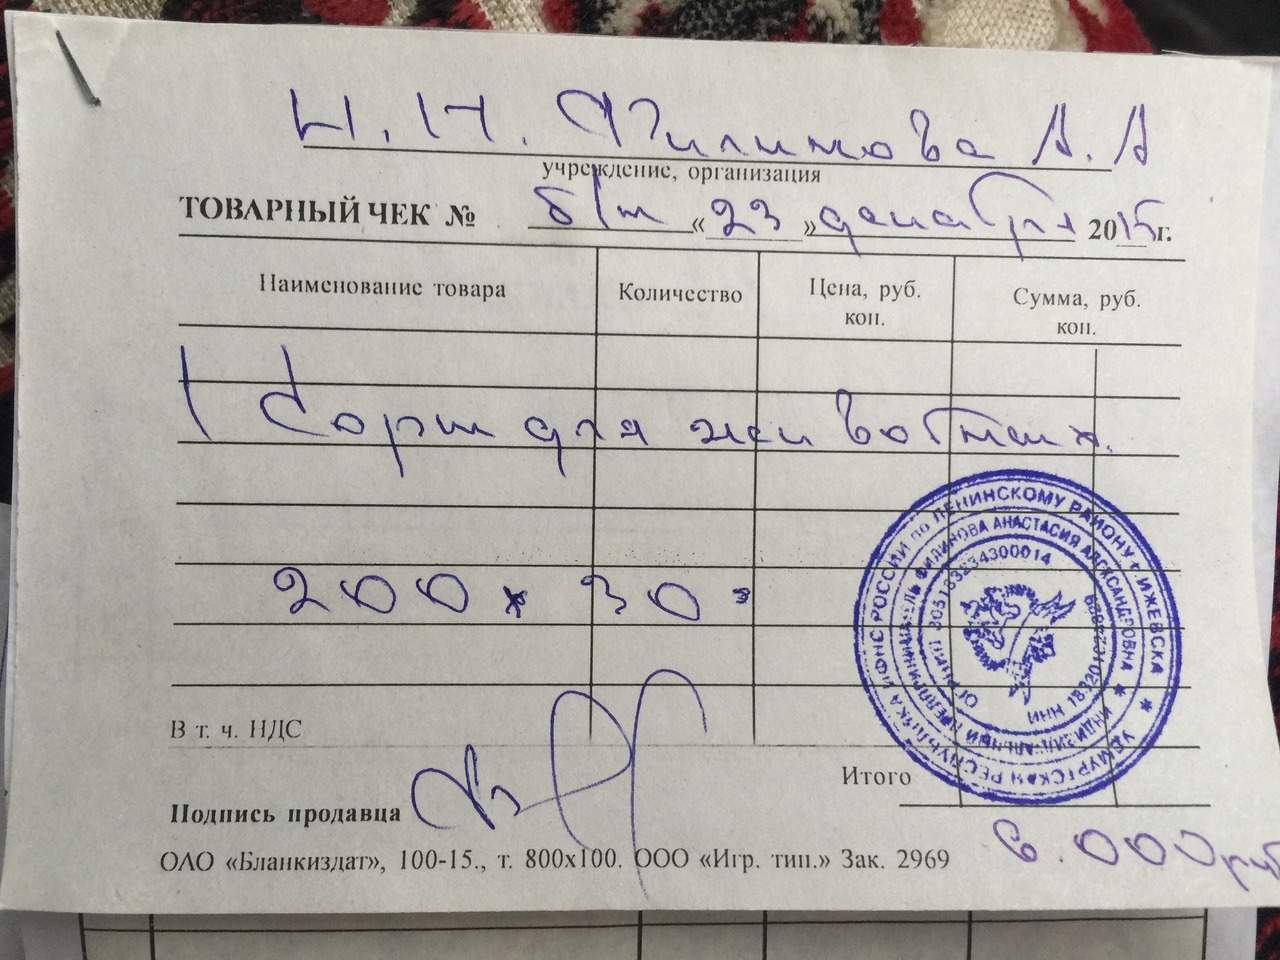 И.П. Филимова А.А
учреждение, организация
ТОВАРНЫЙ ЧЕК № б/н «23» декабря 2015 г.
Наименование товара Количество Цена, руб. коп. Сумма, руб. коп.
Корм для животных.
200 х 30 =
В т. ч. НДС
Итого
Подпись продавца
6.000 руб
ОАО «Бланкиздат», 100-15., т. 800х100. ООО «Игр. тип.» Зак. 2969
УДМУРТСКАЯ РЕСПУБЛИКА ИФНС РОССИИ по ЛЕНИНСКОМУ РАЙОНУ г. ИЖЕВСКА
ИНДИВИДУАЛЬНЫЙ ПРЕДПРИНИМАТЕЛЬ АНАСТАСИЯ АЛЕКСАНДРОВНА
ИНН